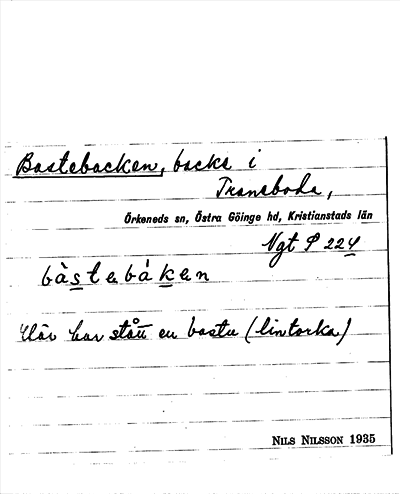 Bastebacken, backe i
Transboda,
Örkeneds sn, Östra Göinge hd, Kristianstads län
Ngt P 224
bàstebáken
Här har stått en bastu (lintorka)
NILS NILSSON 1935